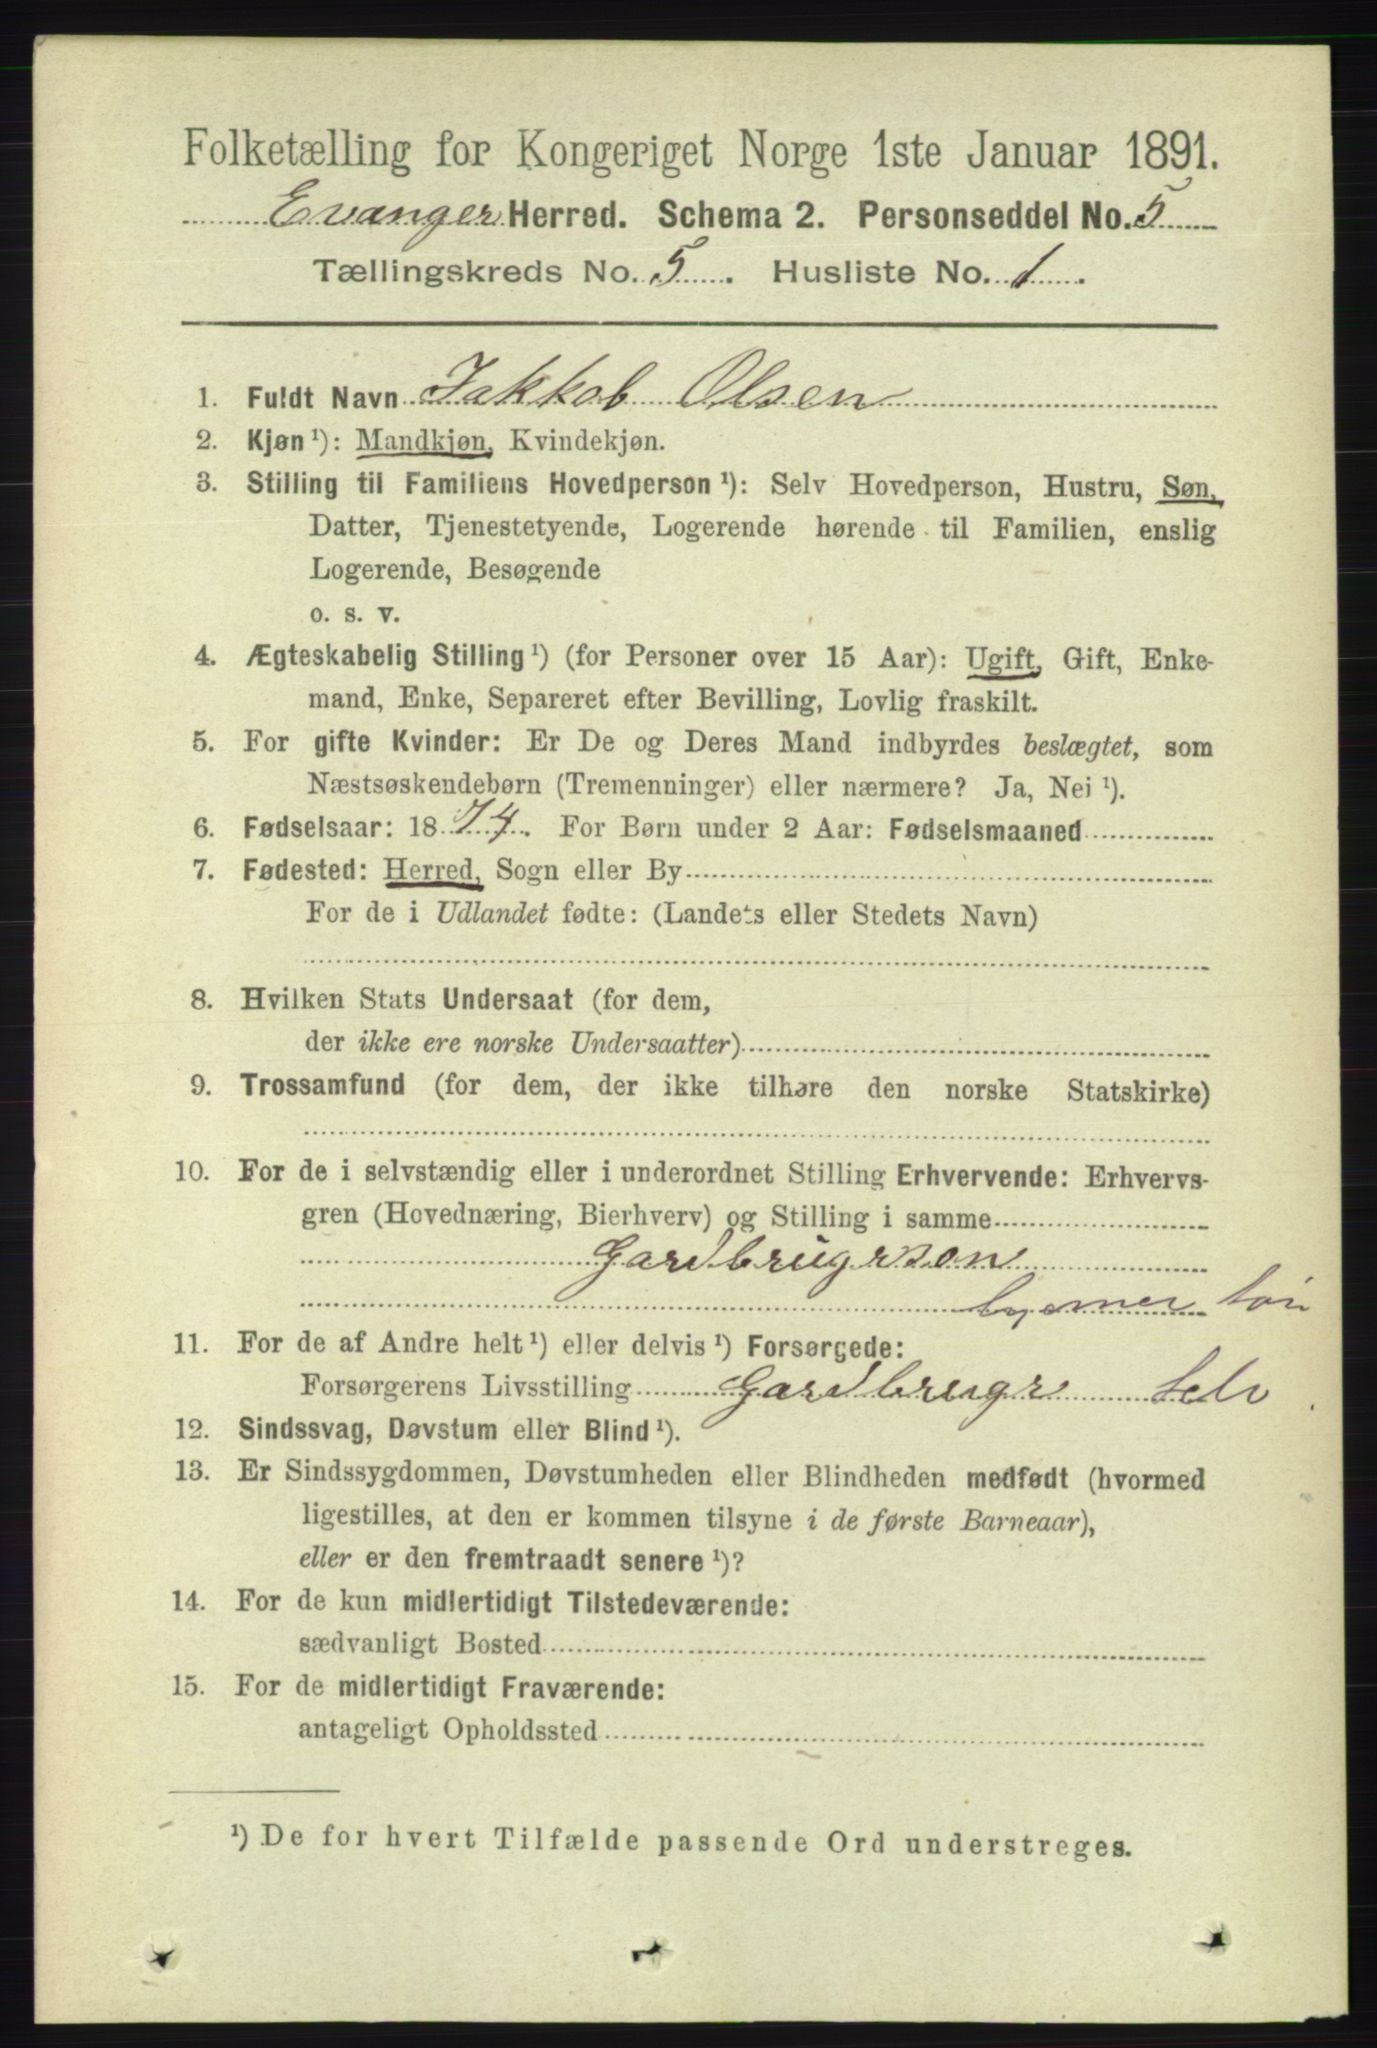 Folketælling for Kongeriget Norge 1ste Januar 1891.
Evanger Herred. Schema 2. Personseddel No. 5
Tællingskreds No. 5. Husliste No. 1.
1. Fuldt Navn Jakkob Olsen
2. Kjøn ¹): Mandkjøn, Kvindekjøn.
3. Stilling til Familiens Hovedperson ¹): Selv Hovedperson, Hustru, Søn,
Datter, Tjenestetyende, Logerende hørende til Familien, enslig
Logerende, Besøgende
o. s. v.
4. Ægteskabelig Stilling ¹) (for Personer over 15 Aar): Ugift, Gift, Enke-
mand, Enke, Separeret efter Bevilling, Lovlig fraskilt.
5. For gifte Kvinder: Er De og Deres Mand indbyrdes beslægtet, som
Næstsøskendebørn (Tremenninger) eller nærmere? Ja, Nei ¹).
6. Fødselsaar: 1874. For Børn under 2 Aar: Fødselsmaaned
7. Fødested: Herred, Sogn eller By
For de i Udlandet fødte: (Landets eller Stedets Navn)
8. Hvilken Stats Undersaat (for dem,
der ikke ere norske Undersaatter)
9. Trossamfund (for dem, der ikke tilhøre den norske Statskirke)
10. For de i selvstændig eller i underordnet Stilling Erhvervende: Erhvervs-
gren (Hovednæring, Bierhverv) og Stilling i samme
Gardbrugrson
11. For de af Andre helt ¹) eller delvis ¹) Forsørgede:
Forsørgerens Livsstilling Gardbrugr Selv
12. Sindssvag, Døvstum eller Blind ¹).
13. Er Sindssygdommen, Døvstumheden eller Blindheden medfødt (hvormed
ligestilles, at den er kommen tilsyne i de første Barneaar),
eller er den fremtraadt senere ¹)?
14. For de kun midlertidigt Tilstedeværende:
sædvanligt Bosted
15. For de midlertidigt Fraværende:
antageligt Opholdssted
¹) De for hvert Tilfælde passende Ord understreges.